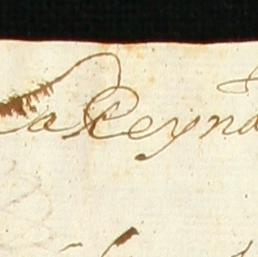 La Reyna